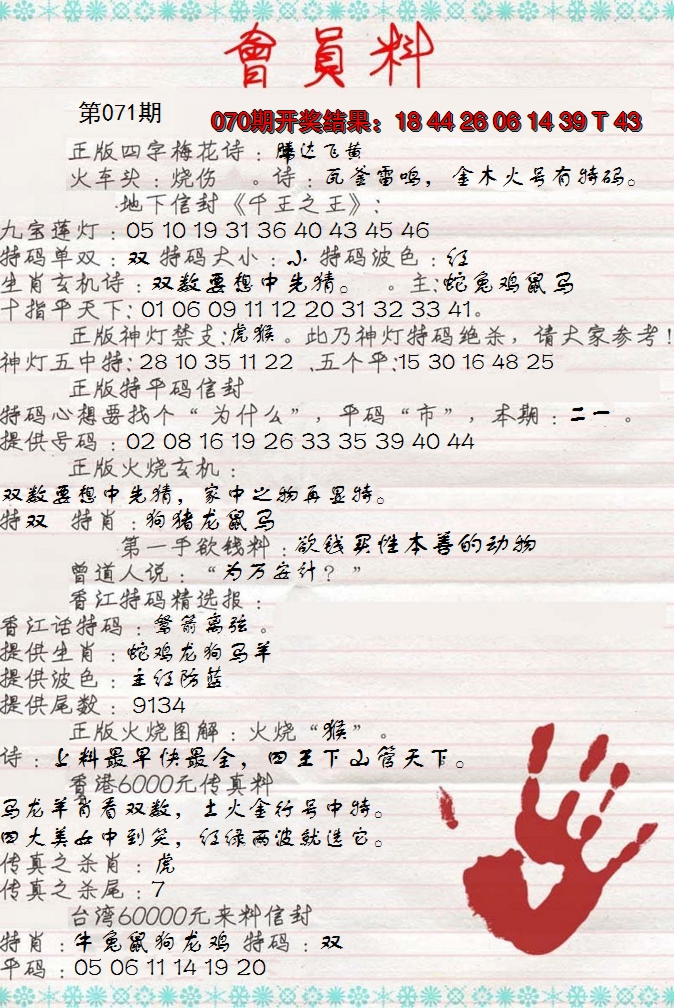 會員料
第071期
070期开奖结果：18 44 26 06 14 39 T 43
正版四字梅花诗：腾达飞黄
火车头：烧伤 。诗：瓦釜雷鸣，金木火号有特码。
地下信封《千王之王》：
九宝莲灯：05 10 19 31 36 40 43 45 46
特码单双：双 特码大小：小 特码波色：红
生肖玄机诗：双数要想中先猜。 。主:蛇兔鸡鼠马
十指平天下: 01 06 09 11 12 20 31 32 33 41。
正版神灯禁支:虎猴。此乃神灯特码绝杀，请大家参考！
神灯五中特:28 10 35 11 22 、五个平:15 30 16 48 25
正版特平码信封
特码心想要找个“为什么”，平码“市”，本期：二一 。
提供号码：02 08 16 19 26 33 35 39 40 44
正版火烧玄机：
双数要想中先猜，家中之物再显特。
特双 特肖：狗猪龙鼠马
第一手欲钱料：欲钱买性本善的动物
曾道人说：“为万安计？”
香江特码精选报：
香江话特码：弩箭离弦。
提供生肖：蛇鸡龙狗马羊
提供波色：主红防蓝
提供尾数：9134
正版火烧图解：火烧“猴”。
诗：上料最早快最全，四王下山管天下。
香港6000元传真料
马龙羊肖看双数，土火金行号中特。
四大美女中到笑，红绿两波就选它。
传真之杀肖：虎
传真之杀尾：7
台湾60000元来料信封
特肖：牛兔鼠狗龙鸡 特码：双
平码：05 06 11 14 19 20